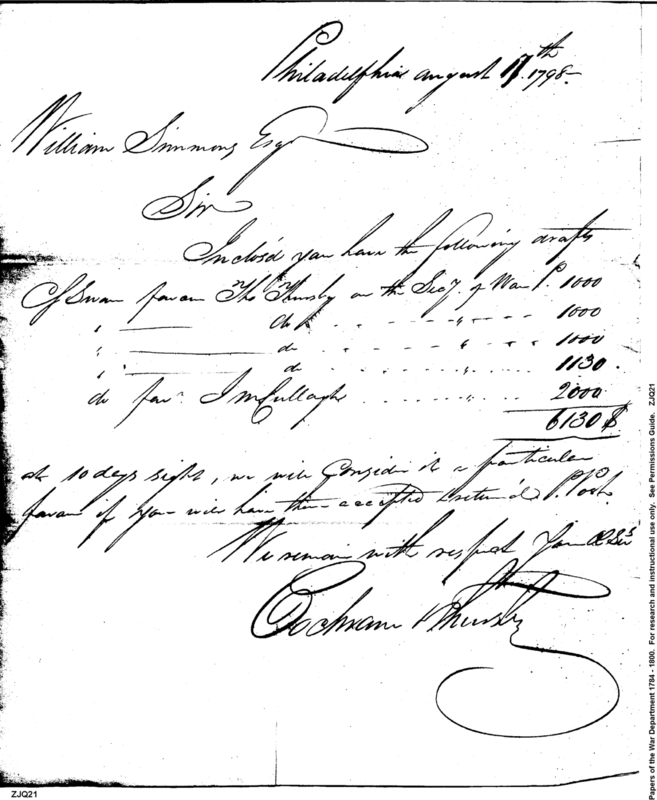 Philadelphia august 17th 1798-
William Simmons Esqr
Sir
Inclos'd you have the following drafts
C Swan favour Tho Thursby on the Secy. of War P. 1000
" do " 1000
" do " 1000
" do " 1130.
do favr. J McCullagh " 2000
6130 $
at 10 days sight, we will Consider it a particular
favour if you will have them accepted & return'd P. Post.
We remain with respect Your Ob Sers
Cochran & Thursby
ZJQ21
Papers of the War Department 1784 - 1800. For research and instructional use only. See Permissions Guide. ZJQ21